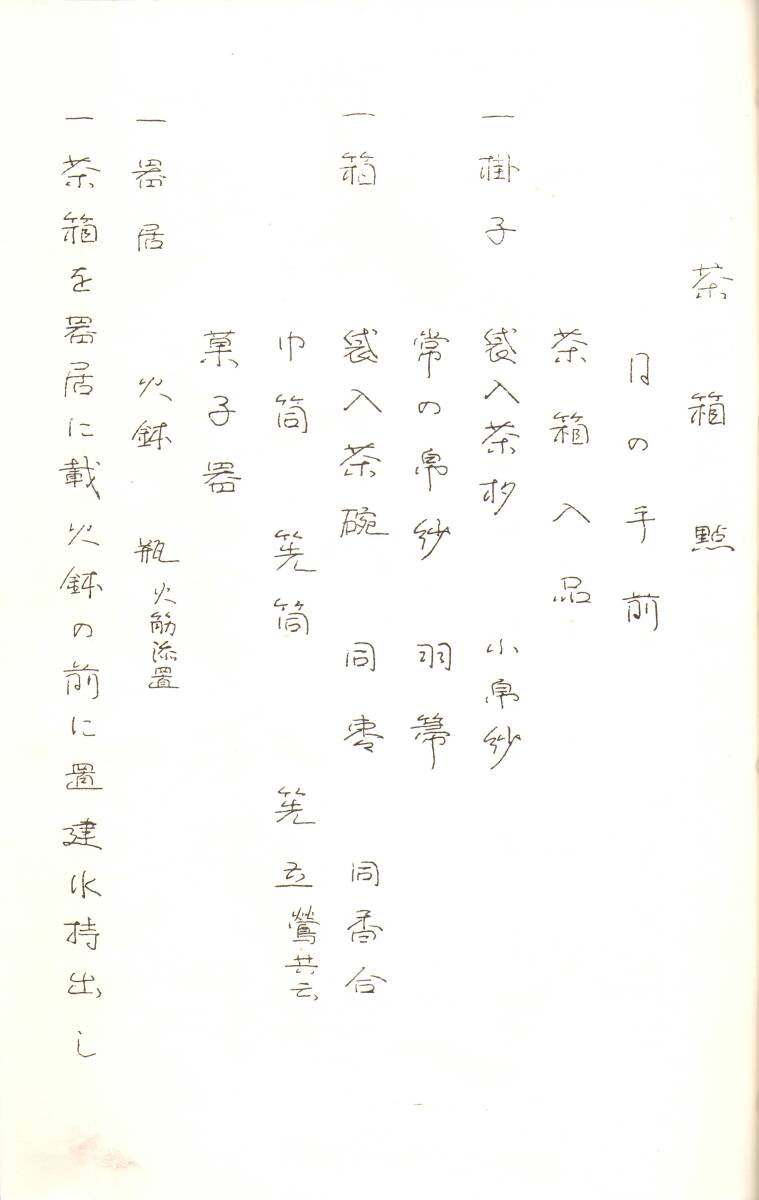 茶箱點
月の手前
茶箱入品
一掛子 袋入茶杓 小帛紗
常の帛紗 羽箒
一箱 袋入茶碗 同棗 同香合
巾筒 筅筒 筅立鶯共云
菓子器
一器居 火鉢 瓶火筋添置
一茶箱を器居に載火鉢の前に置建水持出し